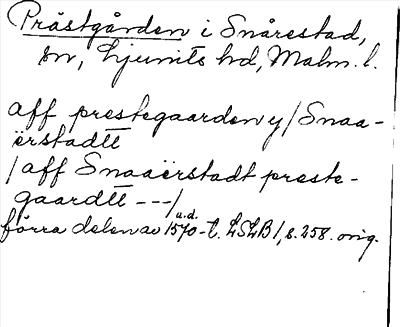 Prästgården i Snårestad,
sn, Ljunits hd, Malm. l.
aff prestegaarden y / Snaa-
ërstadtt
/ aff Snaaërstadt preste-
gaardtt --- /
förra delen av 1570-t. LSLB 1, s. 258. orig.
u.d.